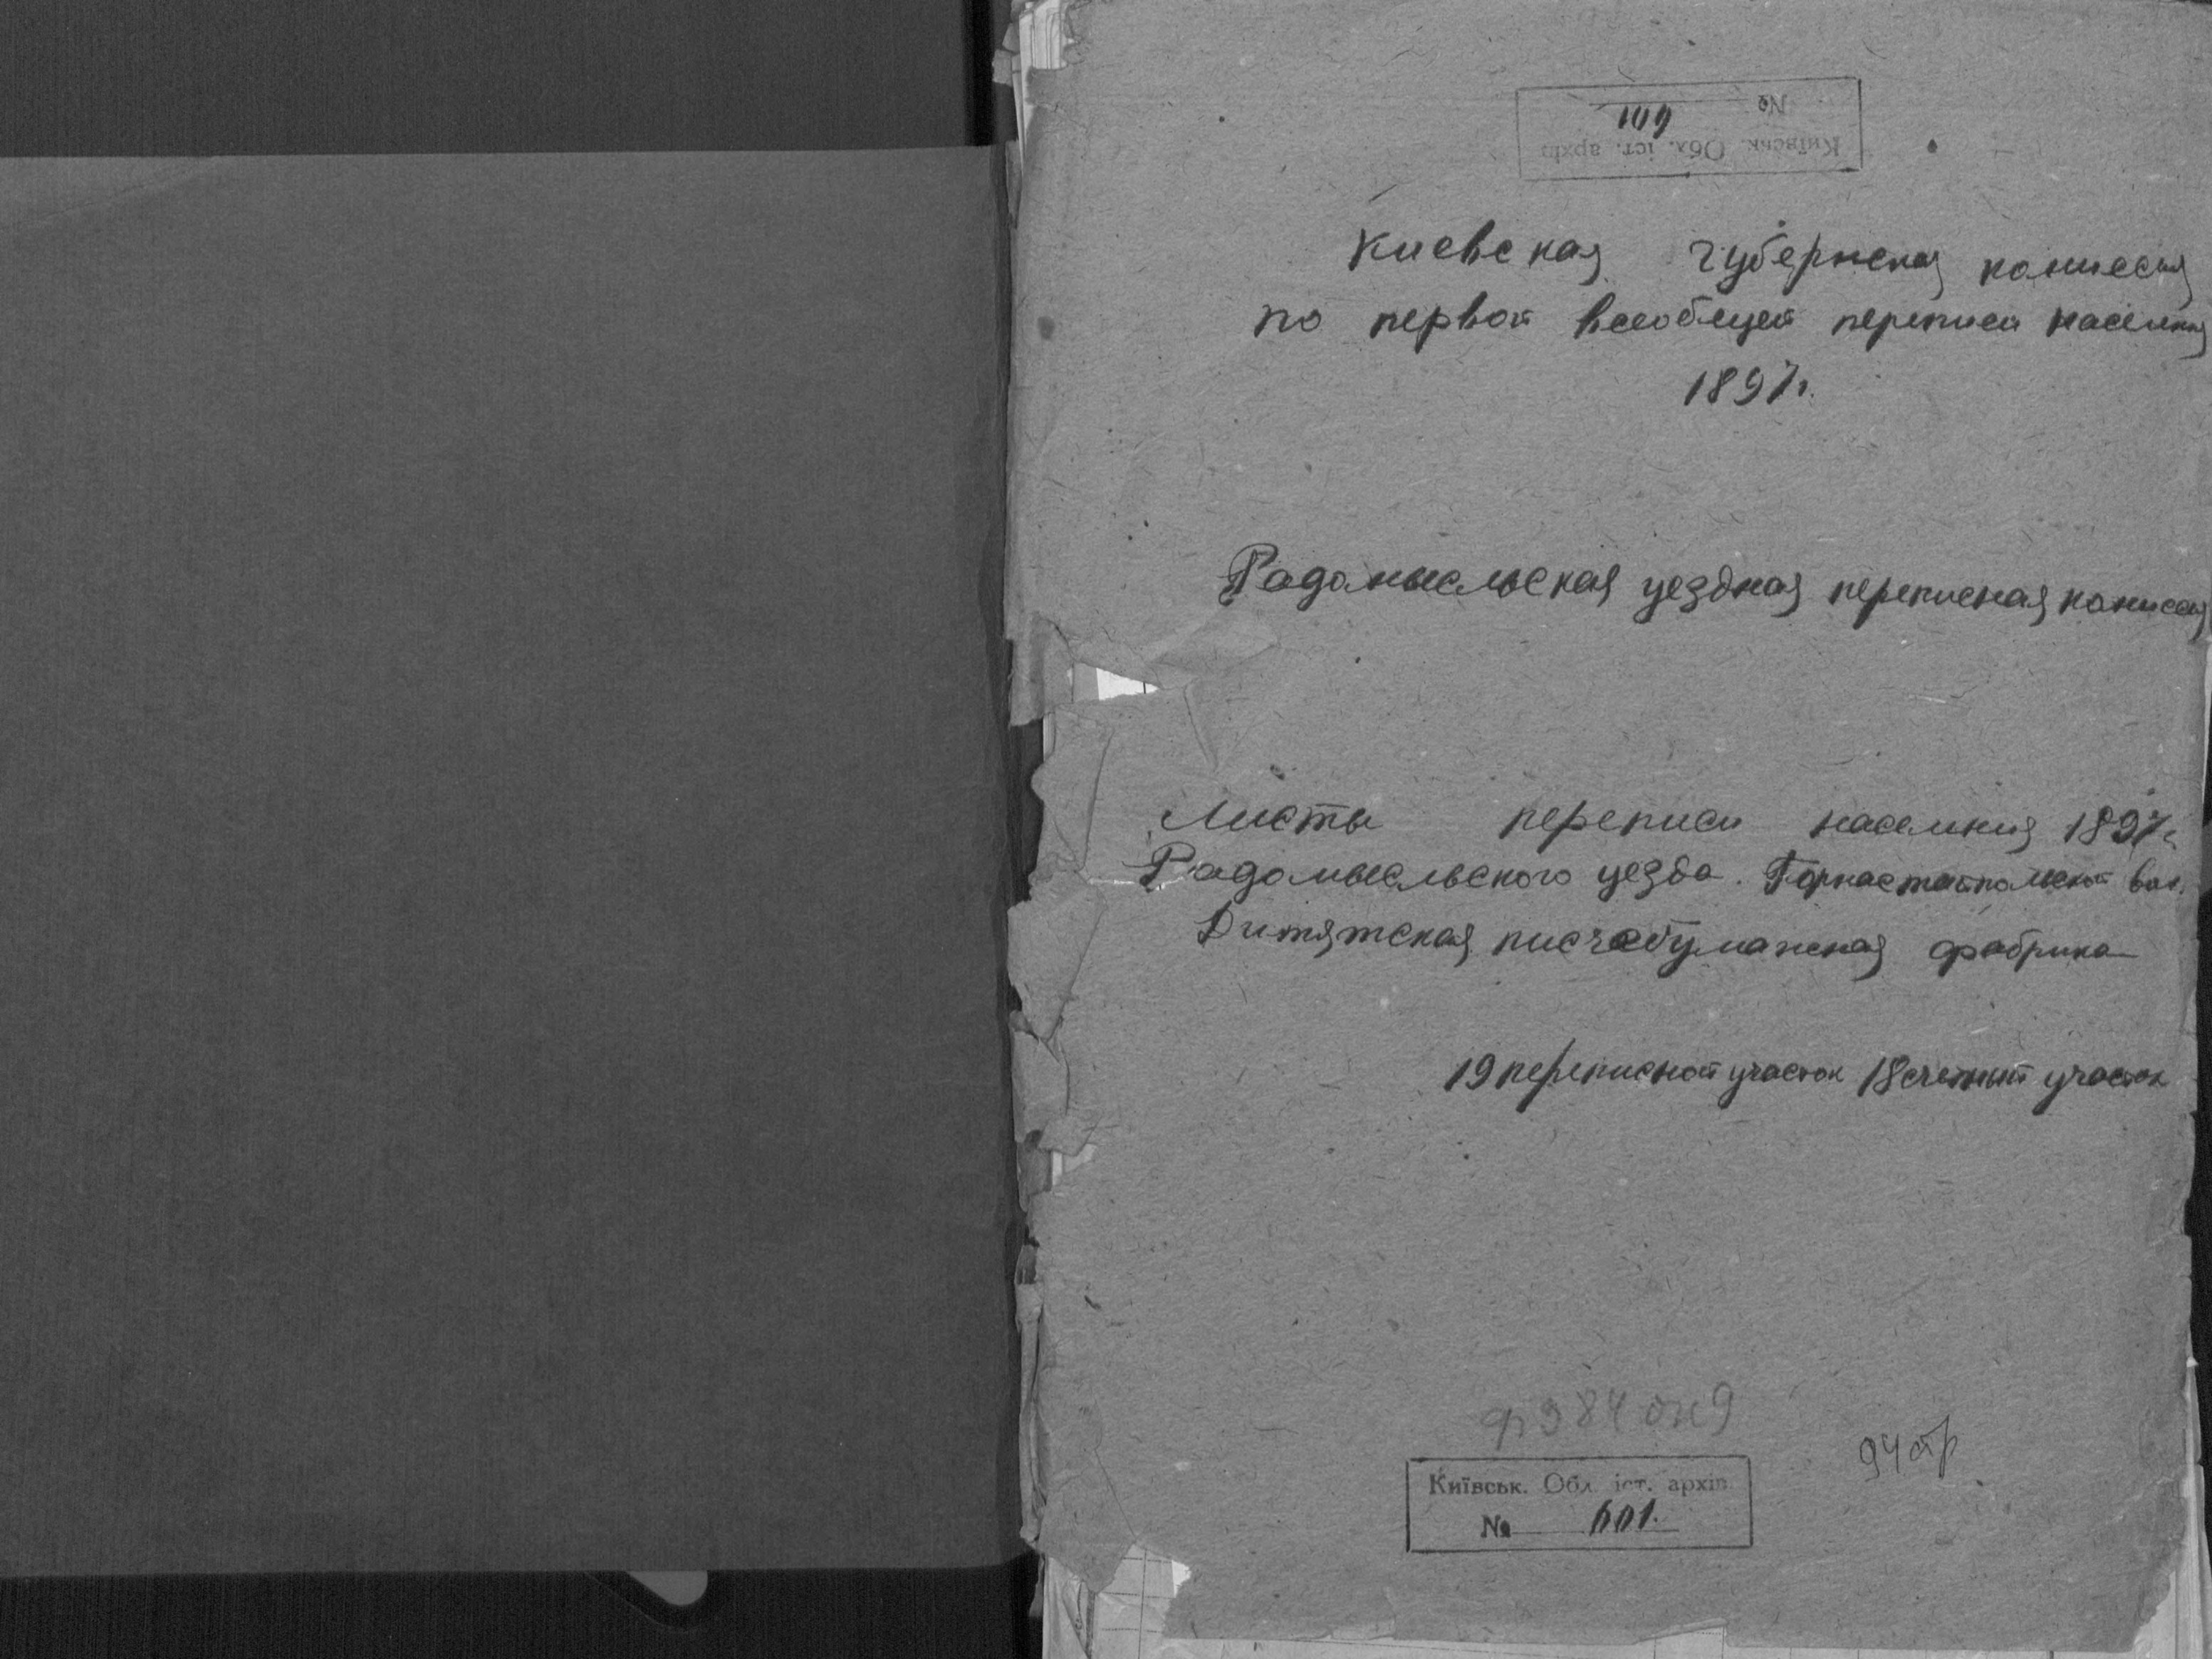 Київськ. Обл. іст. архів
№ 601
Киевская губернская комиссия
по первой всеобщей переписи населения
1897г.
Радомысльская уездная переписная комиссия
Листы переписи населения 1897г.
Радомысльского уезда. Горностайпольской вол.
Дитятская писчебумажная фабрика
19 переписной участок 18 счетный участок
ф 384 оп 9
94 стр
Київськ. Обл. іст. архів
№ 601.